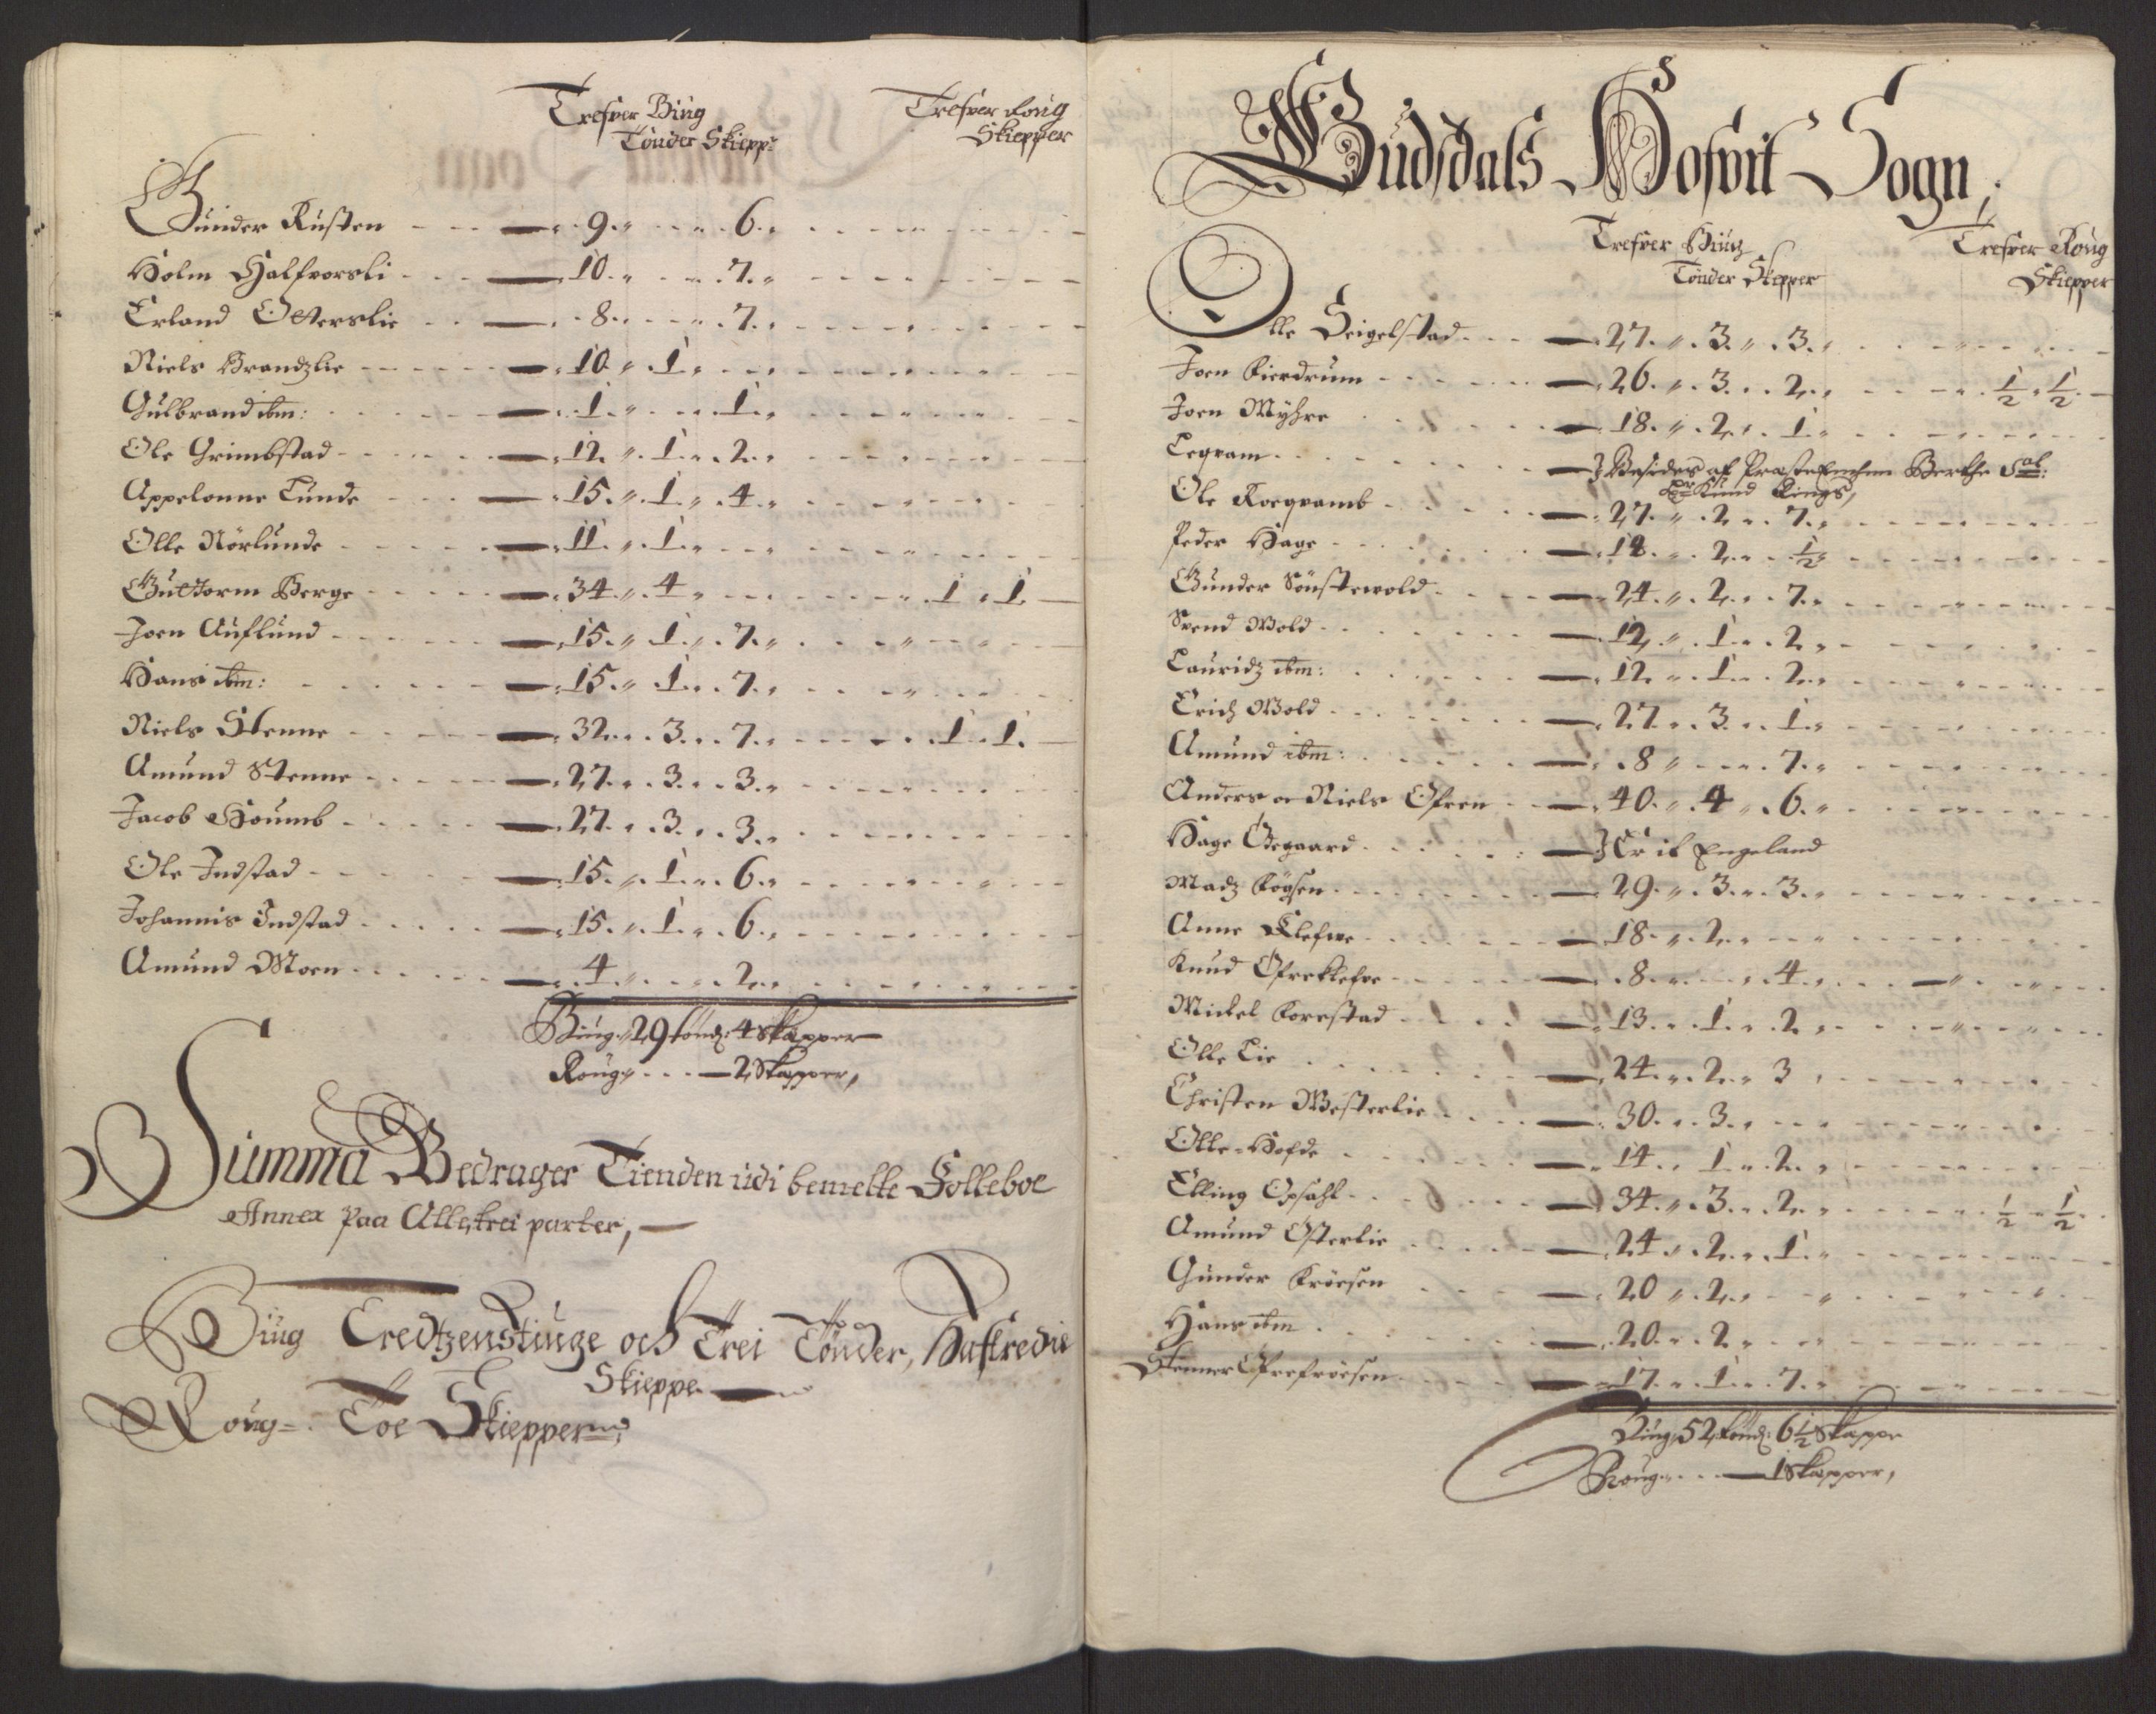 Tresver Biug Tresver Roug
Tönder Skiepp: Skiepper
Gunder Rusten 9 6
Holm Halfvorsli 10 7
Erland Olterslie 8 7
Niels Brandzlie 10 1
Gulbrand ibm: 1 1
Ole Grimbstad 12 1 2
Appelonne Lunde 15 1 4
Olle Nörlunde 11 1
Guttorm Berge 34 4 1 1
Joen Auflund 15 1 7
Hans ibm: 15 1 7
Niels Stenne 32 3 7 1 1
Amund Stenne 27 3 3
Jacob Houmb 27 3 3
Ole Jndstad 15 1 6
Johannis Jndstad 15 1 6
Amund Moen 4 2
Biug 29 tönd: 4 Skäpper
Roug 2 Skäpper,
Summa Bedrager Tienden udi bemelte Folleboe
Annex paa Alle trei parter,
Biug Tredtzenstiuge och Trei Tönder, Halftredie
Skiepper
Roug Toe Skiepper
Gudsdals Hofvit Sogn,
Tresver Biug Tresver Roug
Tönder Skepper Skiepper
Olle Seigelstad 27 3 3
Joen Kierdrum 26 3 2 ½ ½
Joen Myhre 18 2 1
Legvam } Besides af Præste Enchen Berthe Sal:
Hr Knud Rings,
Ole Roeqvamb 27 2 7
Peder Hage 18 2 ½
Gunder Sönstevold 24 2 7
Svend Wold 12 1 2
Lauridz ibm: 12 1 2
Erich Wold 27 3 1
Amund ibm: 8 7
Anders oc Niels Öfren 40 4 6
Hage Ödegaard } Er it Engeland
Madz Köysen 29 3 3
Anne Klefve 18 2
Knud Öfreklefve 8 4
Mickel Forrestad 13 1 2
Olle Lie 24 2 3
Christen Westerlie 30 3
Olle Hofde 14 1 2
Elling Opsahl 34 3 2 ½ ½
Amund Österlie 24 2 1
Gunder Fröesen 20 2
Hans ibm 20 2
Stenner Öfrefröesen 17 1 7
Biug 52 tönd: 6½ Skäpper
Roug 1 Skäpper,